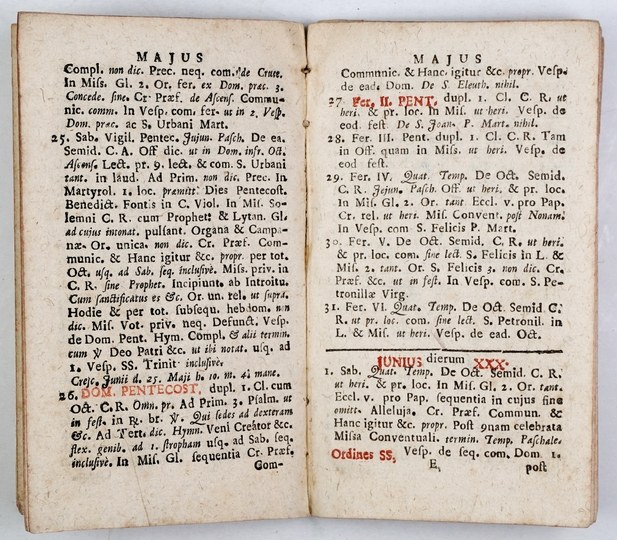 MAJUS
Compl. non dic. Prec. neq. com. de Cruce.
In Miſſ. Gl. 2. Or. fer. ex Dom. præc. 3.
Concede. ſine. Cr. Præf. de Aſcenſ. Commu-
nic. comm. In Veſp. com. fer. ut in 2. Veſp.
Dom. præc. ac S. Urbani Mart.
25. Sab. Vigil. Pentec. Jujun. Paſch. De ea.
Semid. C. A. Off dic. ut in Dom. infr. Oct.
Aſcenſ. Lect. pr. 9. lect. & com. S. Urbani
tant. in laud. Ad Prim. non dic. Prec. In
Martyrol. 1. loc. præmitt. Dies Pentecoſt.
Benedict. Fontis in C. Viol. In Miſ. So-
lemni C. R. cum Prophett & Lytan. Gl.
ad cujus intonat. pulſant. Organa & Campa-
næ. Or. unica. non dic. Cr. Præf. Com-
munic. & Hanc igitur &c. propr. per tot.
Oct. uſq. ad Sab. ſeq. incluſivè. Miſſ. priv. in
C. R. ſine Prophet. Incipiunt. ab Introitu.
Cum ſanctificatus es &c. Or. un. rel. ut ſupra.
Hodie & per tot. ſubſequ. hebdom. non
dic. Miſ. Vot. priv. neq. Defunct. Veſp.
de Dom. Pent. Hym. Compl. & alii termin.
cum ℣ Deo Patri &c. ut ibi notat. uſq. ad
1. Veſp. SS. Trinit incluſivè.
Creſc. Junii d. 25. Maji h. 10. m. 42 mane.
26. DOM. PENTECOST. dupl. 1. Cl. cum
Oct. C. R. Omn. pr. Ad Prim. 3. Pſalm. ut
in feſt. in ℟. br. ℣. Qui ſedes ad dexteram
&c. Ad Tert. dic. Hymn. Veni Creator &c.
flex. genib. ad 1. ſtropham uſq. ad Sab. ſeq.
incluſivè. In Miſ. Gl. ſequentia Cr. Præf.
Com-
MAJUS
Communic. & Hanc igitur &c. propr. Veſp.
de ead. Dom. De S. Eleuth. nihil.
27. Fer. II. PENT. dupl. 1. Cl. C. R. ut
heri. & pr. loc. In Miſ. ut heri. Veſp. de
eod feſt De S. Joan. P. Mart. nihil.
28. Fer. III. Pent. dupl. 1. Cl. C. R. Tam
in Off. quam in Miſſ. ut heri. Veſp. de
eod feſt.
29. Fer. IV. Quat. Temp. De Oct. Semid.
C. R. Jejun. Paſch. Off. ut heri, & pr. loc.
In Miſ. Gl. 2. Or. tant. Eccl. v. pro Pap.
Cr. rel. ut heri. Miſ. Convent. poſt Nonam.
In Veſp. com S. Felicis P. Mart.
30. Fer. V. De Oct. Semid. C. R. ut heri.
& pr. loc. com. ſine lect. S. Felicis in L. &
Miſ. 2. tant. Or. S. Felicis 3. non dic. Cr.
Præf. &c. ut in feſt. In Veſp. com. S. Pe-
tronillæ Virg.
31. Fer. VI. Quat. Temp. De Oct. Semid C.
R. ut pr. loc. com. ſine lect. S. Petronil. in
L. & Miſ. ut heri. Veſp. de ead. Oct.
JUNIUS dierum XXX.
1. Sab. Quat. Temp. De Oct. Semid. C. R.
ut heri. & pr. loc. In Miſ. Gl. 2. Or. tant.
Eccl. v. pro Pap. ſequentia in cujus fine
omitt. Alleluja. Cr. Præf. Commun. &
Hanc igitur &c. propr. Poſt 9nam celebrata
Miſſa Conventuali. termin. Temp. Paſchale.
Ordines SS. Veſp. de ſeq. com. Dom 1.
E, poſt